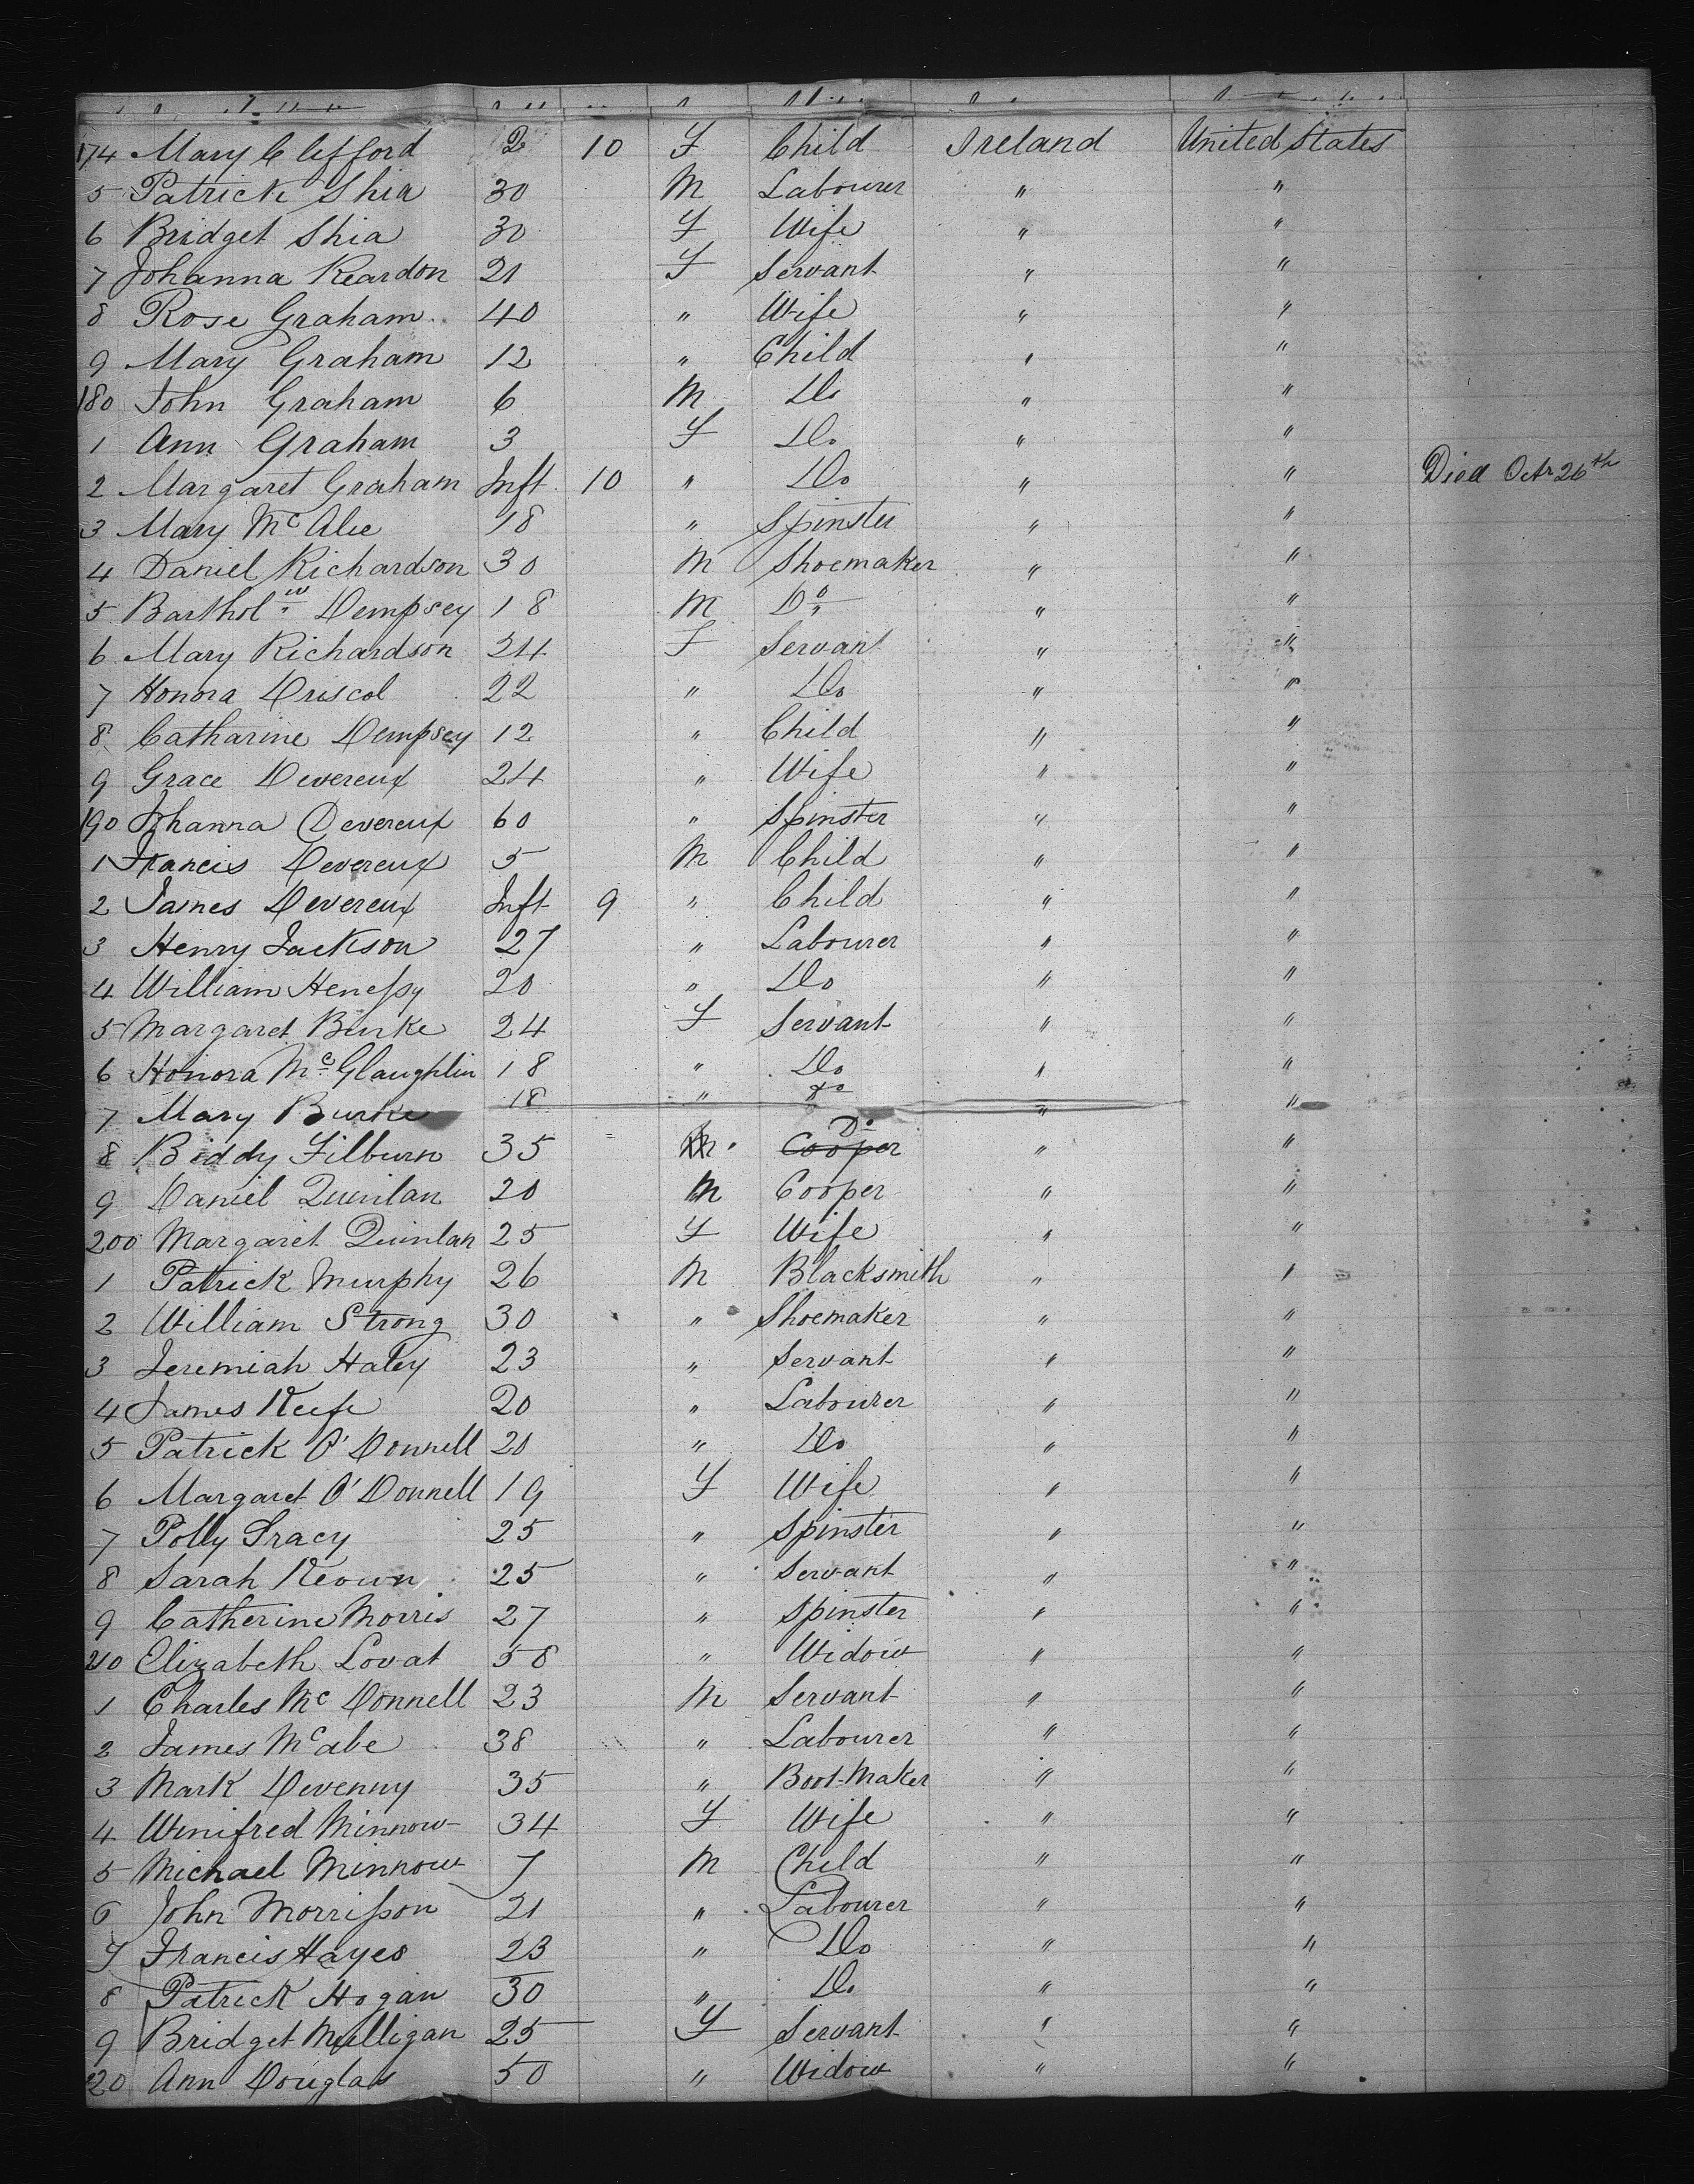 174 Mary Clifford 2 10 F Child Ireland United States
5 Patrick Shia 30 M Labourer " "
6 Bridget Shia 30 F Wife " "
7 Johanna Reardon 21 F Servant " "
8 Rose Graham 40 " Wife " "
9 Mary Graham 12 " Child " "
180 John Graham 6 M Do " "
1 Ann Graham 3 F Do " "
2 Margaret Graham Inft 10 " Do " " Died Octr 26th
3 Mary McAlee 18 " Spinster " "
4 Daniel Richardson 30 M Shoemaker " "
5 Bartholw Dempsey 18 M Do " "
6 Mary Richardson 24 F Servant " "
7 Honora Driscol 22 " Do " "
8 Catharine Dempsey 12 " Child " "
9 Grace Devereux 24 " Wife " "
190 Johanna Devereux 60 " Spinster " "
1 Francis Devereux 5 M Child " "
2 James Devereux Inft 9 " Child " "
3 Henry Jackson 27 " Labourer " "
4 William Henessy 20 " Do " "
5 Margaret Burke 24 F Servant " "
6 Honora McGlaughlin 18 " Do " "
7 Mary Burke 18 " Do " "
8 Biddy Filburn 35 Cooper Do " "
9 Daniel Quinlan 20 M Cooper " "
200 Margaret Quinlan 25 F Wife " "
1 Patrick Murphy 26 M Blacksmith " "
2 William Strong 30 " Shoemaker " "
3 Jeremiah Haley 23 " Servant " "
4 James Keefe 20 " Labourer " "
5 Patrick O'Donnell 20 " Do " "
6 Margaret O'Donnell 19 F Wife " "
7 Polly Tracy 25 " Spinster " "
8 Sarah Keown 25 " Servant " "
9 Catherine Morris 27 " Spinster " "
210 Elizabeth Lovat 58 " Widow " "
1 Charles McDonnell 23 M Servant " "
2 James Mcabe 38 " Labourer " "
3 Mark Devenny 35 " Boot-Maker " "
4 Winifred Minnow 34 F Wife " "
5 Michael Minnow 7 M Child " "
6 John Morrisson 21 " Labourer " "
7 Francis Hayes 23 " Do " "
8 Patrick Hogan 30 " Do " "
9 Bridget Mulligan 25 F Servant " "
220 Ann Douglas 50 " Widow " "